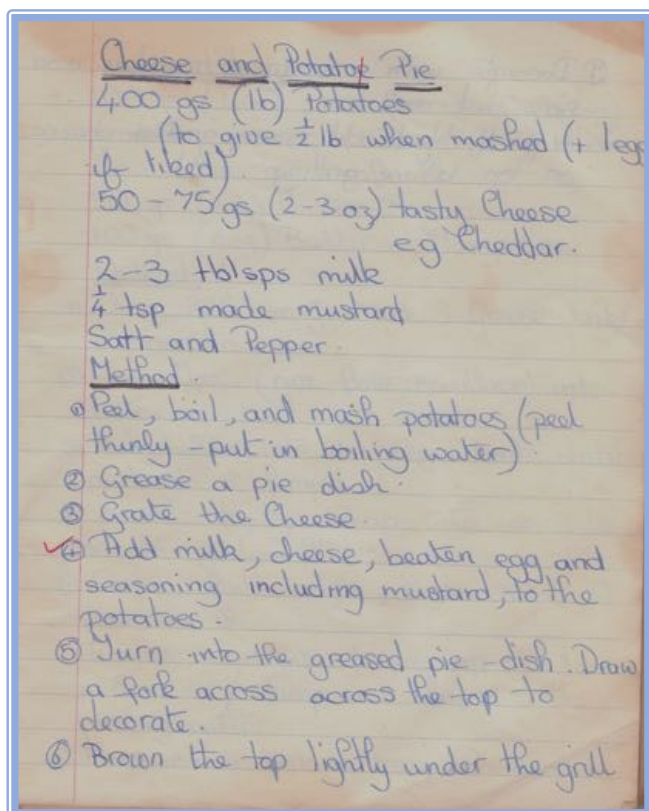 Cheese and Potatoe Pie
400 gs (1lb) Potatoes
(to give ½ lb when mashed (+ 1egg
if liked)
50 - 75 gs (2-3 oz) tasty Cheese
eg Cheddar.
2-3 tblsps milk
¼ tsp made mustard
Salt and Pepper.
Method
① Peel, boil, and mash potatoes (peel
thinly - put in boiling water)
② Grease a pie dish.
③ Grate the Cheese.
④ Add milk, cheese, beaten egg and
seasoning including mustard, to the
potatoes.
⑤ Turn into the greased pie-dish. Draw
a fork across across the top to
decorate.
⑥ Brown the top lightly under the grill